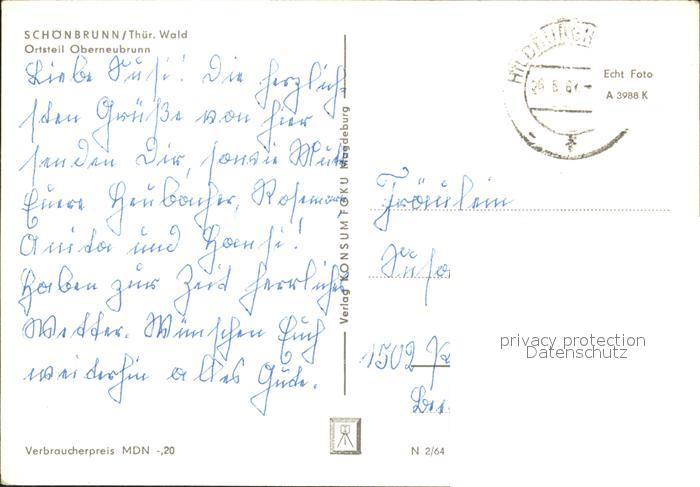 SCHÖNBRUNN/Thür. Wald
Ortsteil Oberneubrunn
Liebe Susi! Die herzlich
sten Grüße von hier
senden Dir, sowie Mutt
Euere Heubacher, Rosemarie
Anita und Hansi!
Haben zur Zeit herrliches
Wetter. Wünschen Euch
weiterhin alles Gute.
Verbraucherpreis MDN -,20
Verlag KONSUM FOKU Magdeburg
HILDBURGH
Echt Foto
A 3988 K
Fräulein
1502
privacy protection
Datenschutz
N 2/64